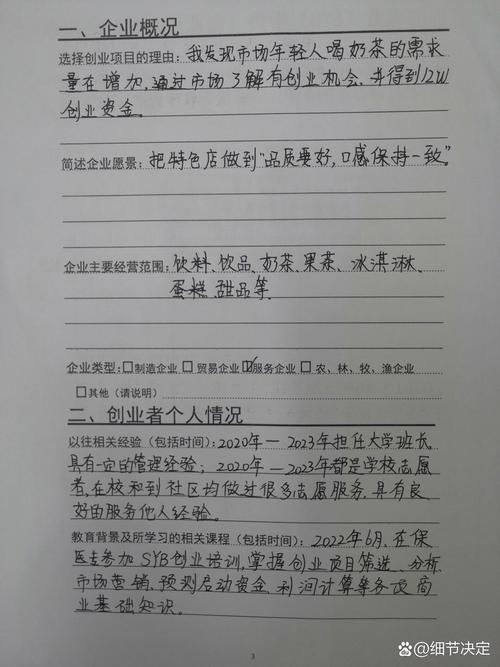 一、企业概况
选择创业项目的理由：我发现市场年轻人喝奶茶的需求
量在增加，通过市场了解有创业机会，并得到12W
创业资金。
简述企业愿景：把特色店做到“品质要好，口感保持一致”。
企业主要经营范围：饮料、饮品、奶茶、果茶、冰淇淋、
蛋糕、甜品等
企业类型：□制造企业 □贸易企业 ☑服务企业 □农、林、牧、渔企业
□其他（请说明）
二、创业者个人情况
以往相关经验（包括时间）：2020年－2023年担任大学班长
具有一定的管理经验；2020年－2023年都是学校志愿
者，在校和到社区均做过很多志愿服务，具有良
好的服务他人经验。
教育背景及所学习的相关课程（包括时间）：2022年6月，在保
医专参加SYB创业培训，掌握创业项目筛选、分析、
市场营销、预测启动资金、利润计算等各设商
业基础知识。
3
@细节决定